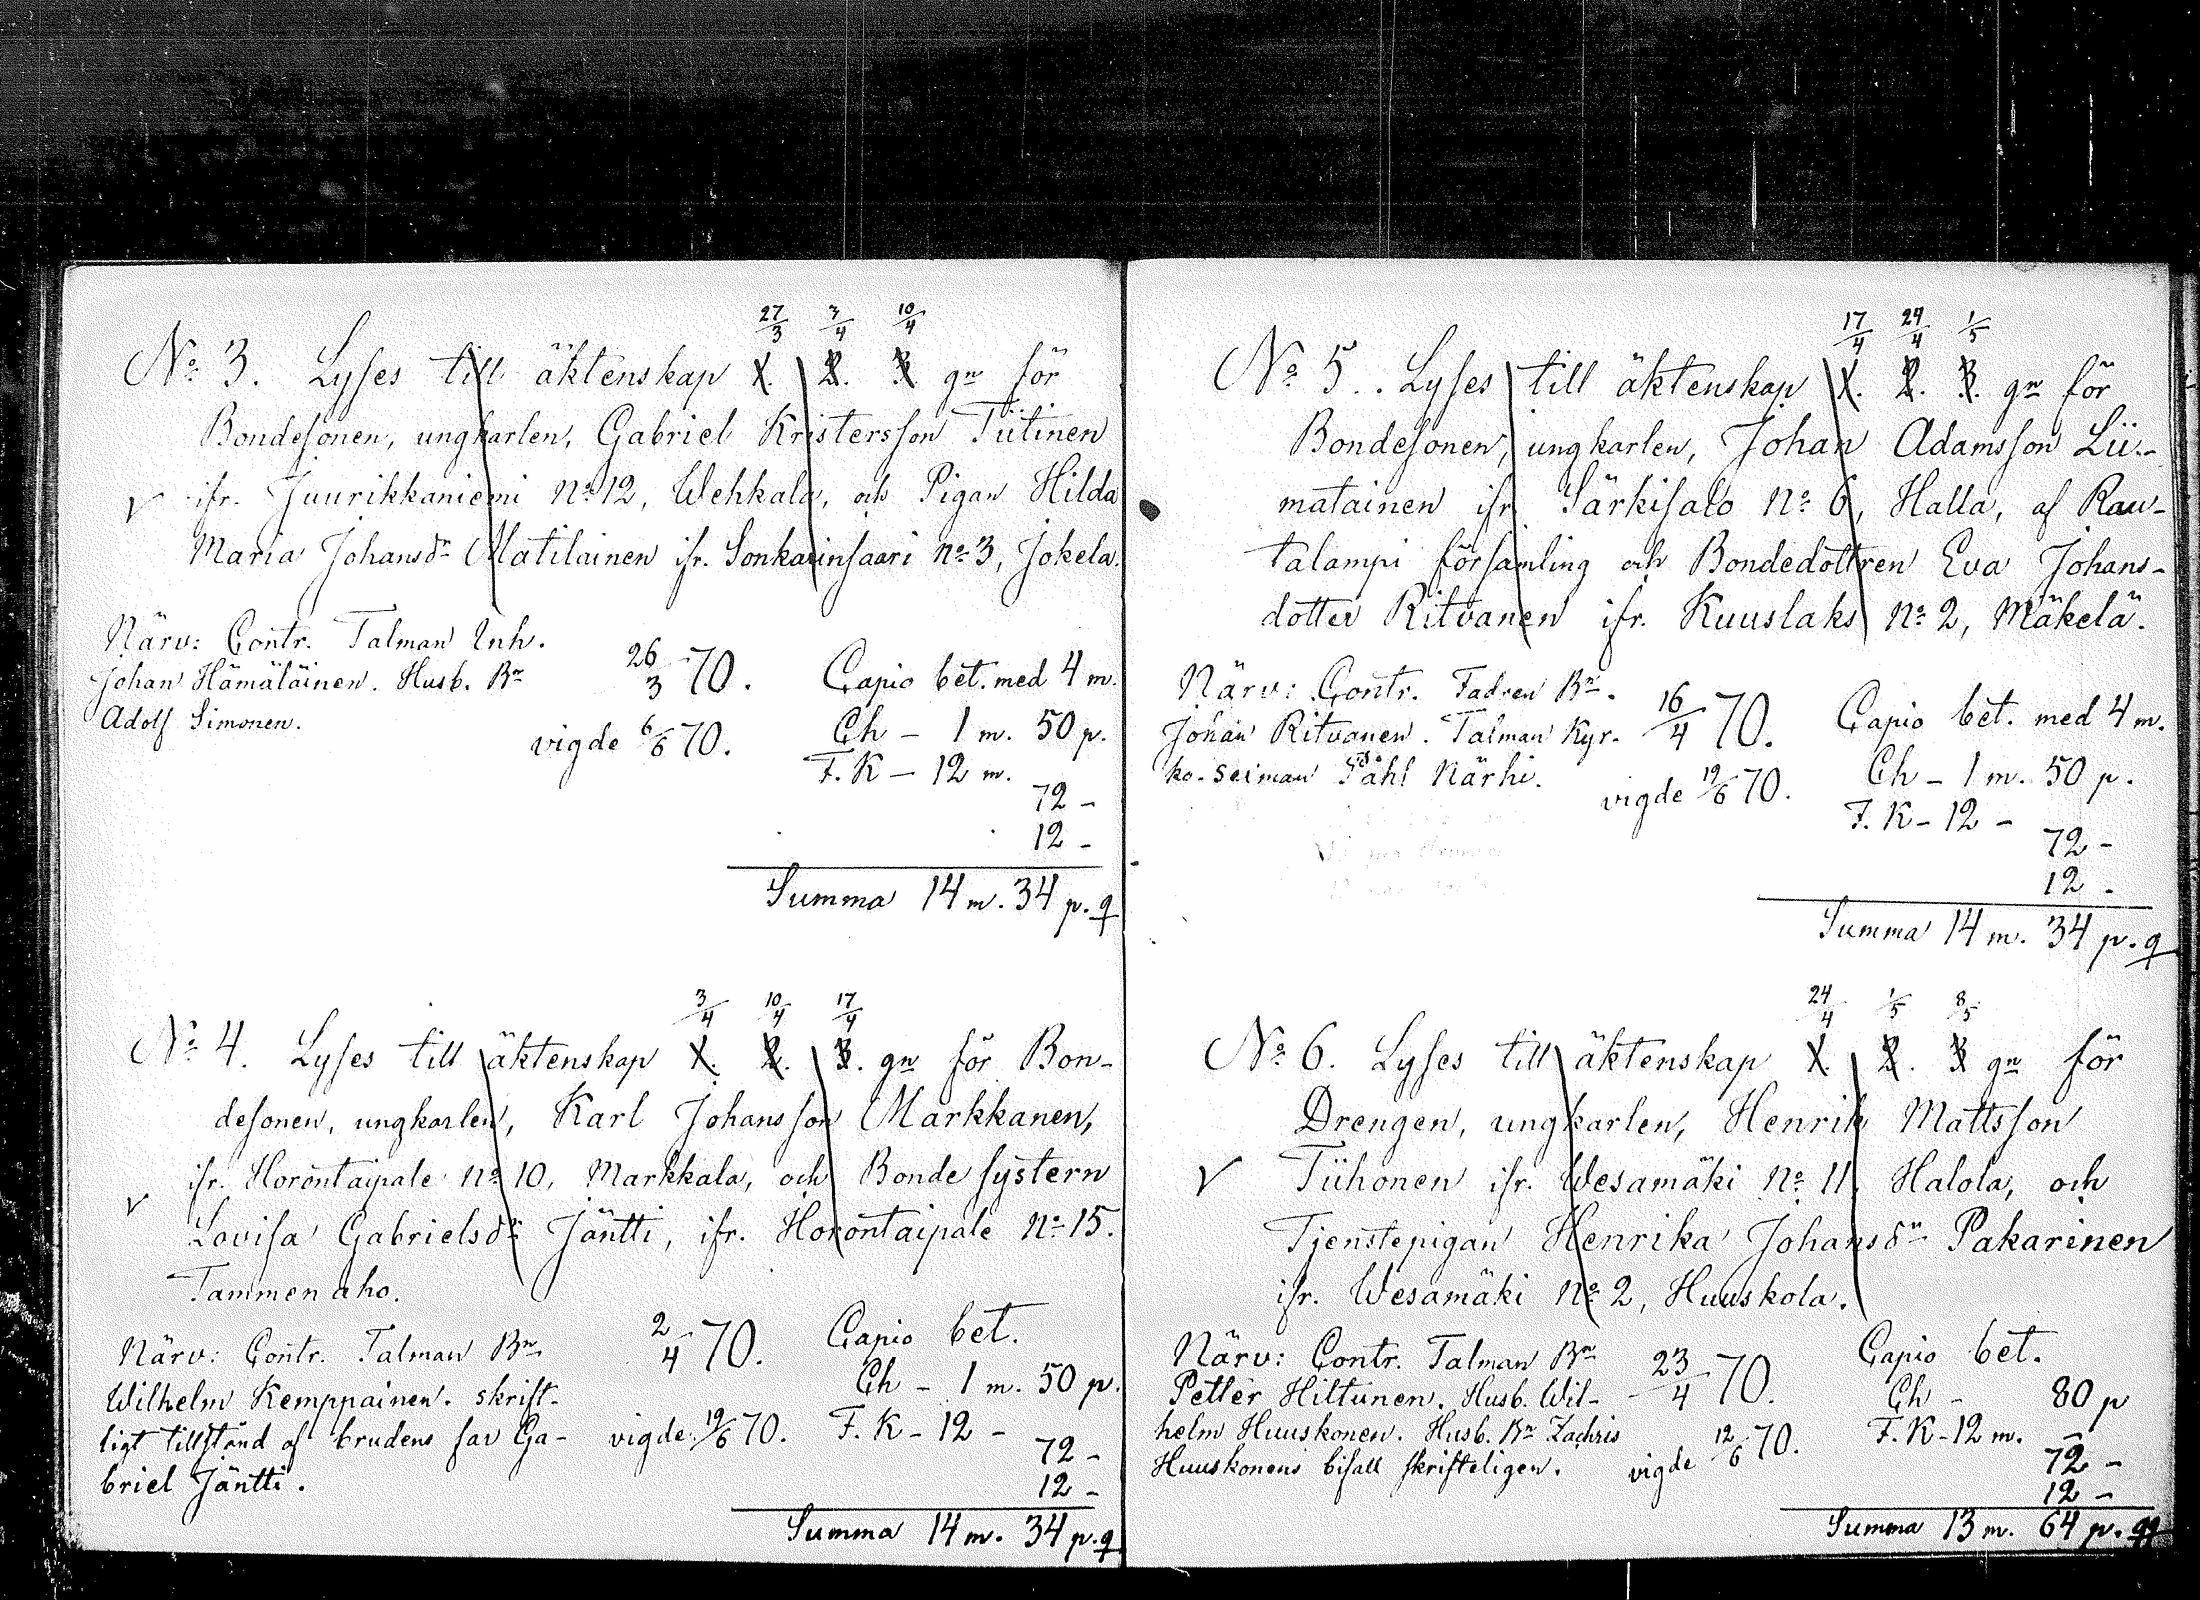 27/3 3/4 10/4
No 3. Lyses till äktenskap 1. 2. 3. gn för
Bondesonen, ungkarlen, Gabriel Kristersson Tiitinen
ifr. Juurikkaniemi No 12, Wehkala, och Pigan Hilda
Maria Johansdr Matilainen ifr. Sonkarinsaari No 3, Jokela.
Närv: Contr. Talman Inh.
Johan Hämäläinen. Husb. Bn
Adolf Simonen.
26/3 70.
vigde 6/6 70.
Capio bet. med 4 m.
Ch – 1 m. 50 p.
F. K – 12 m.
72 –
12 –
Summa 14 m. 34 p.
3/4 10/4 17/4
No 4. Lyses till äktenskap 1. 2. 3. gn för Bon-
desonen, ungkarlen, Karl Johansson Markkanen,
ifr. Horontaipale No 10, Markkala, och Bonde systern
Lovisa Gabrielsdr Jäntti, ifr. Horontaipale No 15.
Tammen aho.
Närv: Contr. Talman Bn
Wilhelm Kemppainen. skrift-
ligt tillstånd af brudens far Ga-
briel Jäntti.
2/4 70.
vigde 19/6 70.
Capio bet.
Ch – 1 m. 50 p.
F. K – 12 –
72 –
12 –
Summa 14 m. 34 p.
17/4 24/4 1/5
No 5. Lyses till äktenskap 1. 2. 3. gn för
Bondesonen, ungkarlen, Johan Adamsson Lii-
matainen ifr. Särkisalo No 6, Halla, af Rau-
talampi församling och Bondedottren Eva Johans-
dotter Ritvanen ifr. Kuuslaks No 2, Mäkelä.
Närv: Contr. Fadren Bn.
Johan Ritvanen. Talman Kyr-
ko-seiman Påhl Närhi.
16/4 70.
vigde 19/6 70.
Capio bet. med 4 m.
Ch – 1 m. 50 p.
F. K – 12 –
72 –
12 –
Summa 14 m. 34 p.
24/4 1/5 8/5
No 6. Lyses till äktenskap 1. 2. 3 gn för
Drengen, ungkarlen, Henrik Mattsson
Tiihonen ifr. Wesamäki No 11, Halola, och
Tjenstepigan Henrika Johansdr Pakarinen
ifr. Wesamäki No 2, Huuskola.
Närv: Contr. Talman Bn
Petter Hiltunen. Husb. Wil-
helm Huuskonen. Husb. Bn Zachris
Huuskonens bifall skrifteligen.
23/4 70.
vigde 12/6 70.
Capio bet.
Ch – 80 p
F. K – 12 m. –
72 –
12 –
Summa 13 m. 64 p.